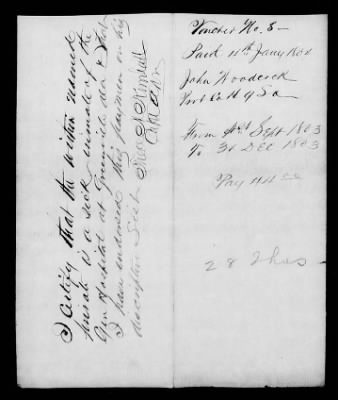 I certify that the within named
private is a sick inmate of the
Gen Hospital at
I have endorsed this payment on his
descriptive list
Voucher No. 8
Paid 4th Jany 186
John Woodcock
Pvt Co H 9
From Sept 1863
To 31 Dec 1863
Pay 44 00
28